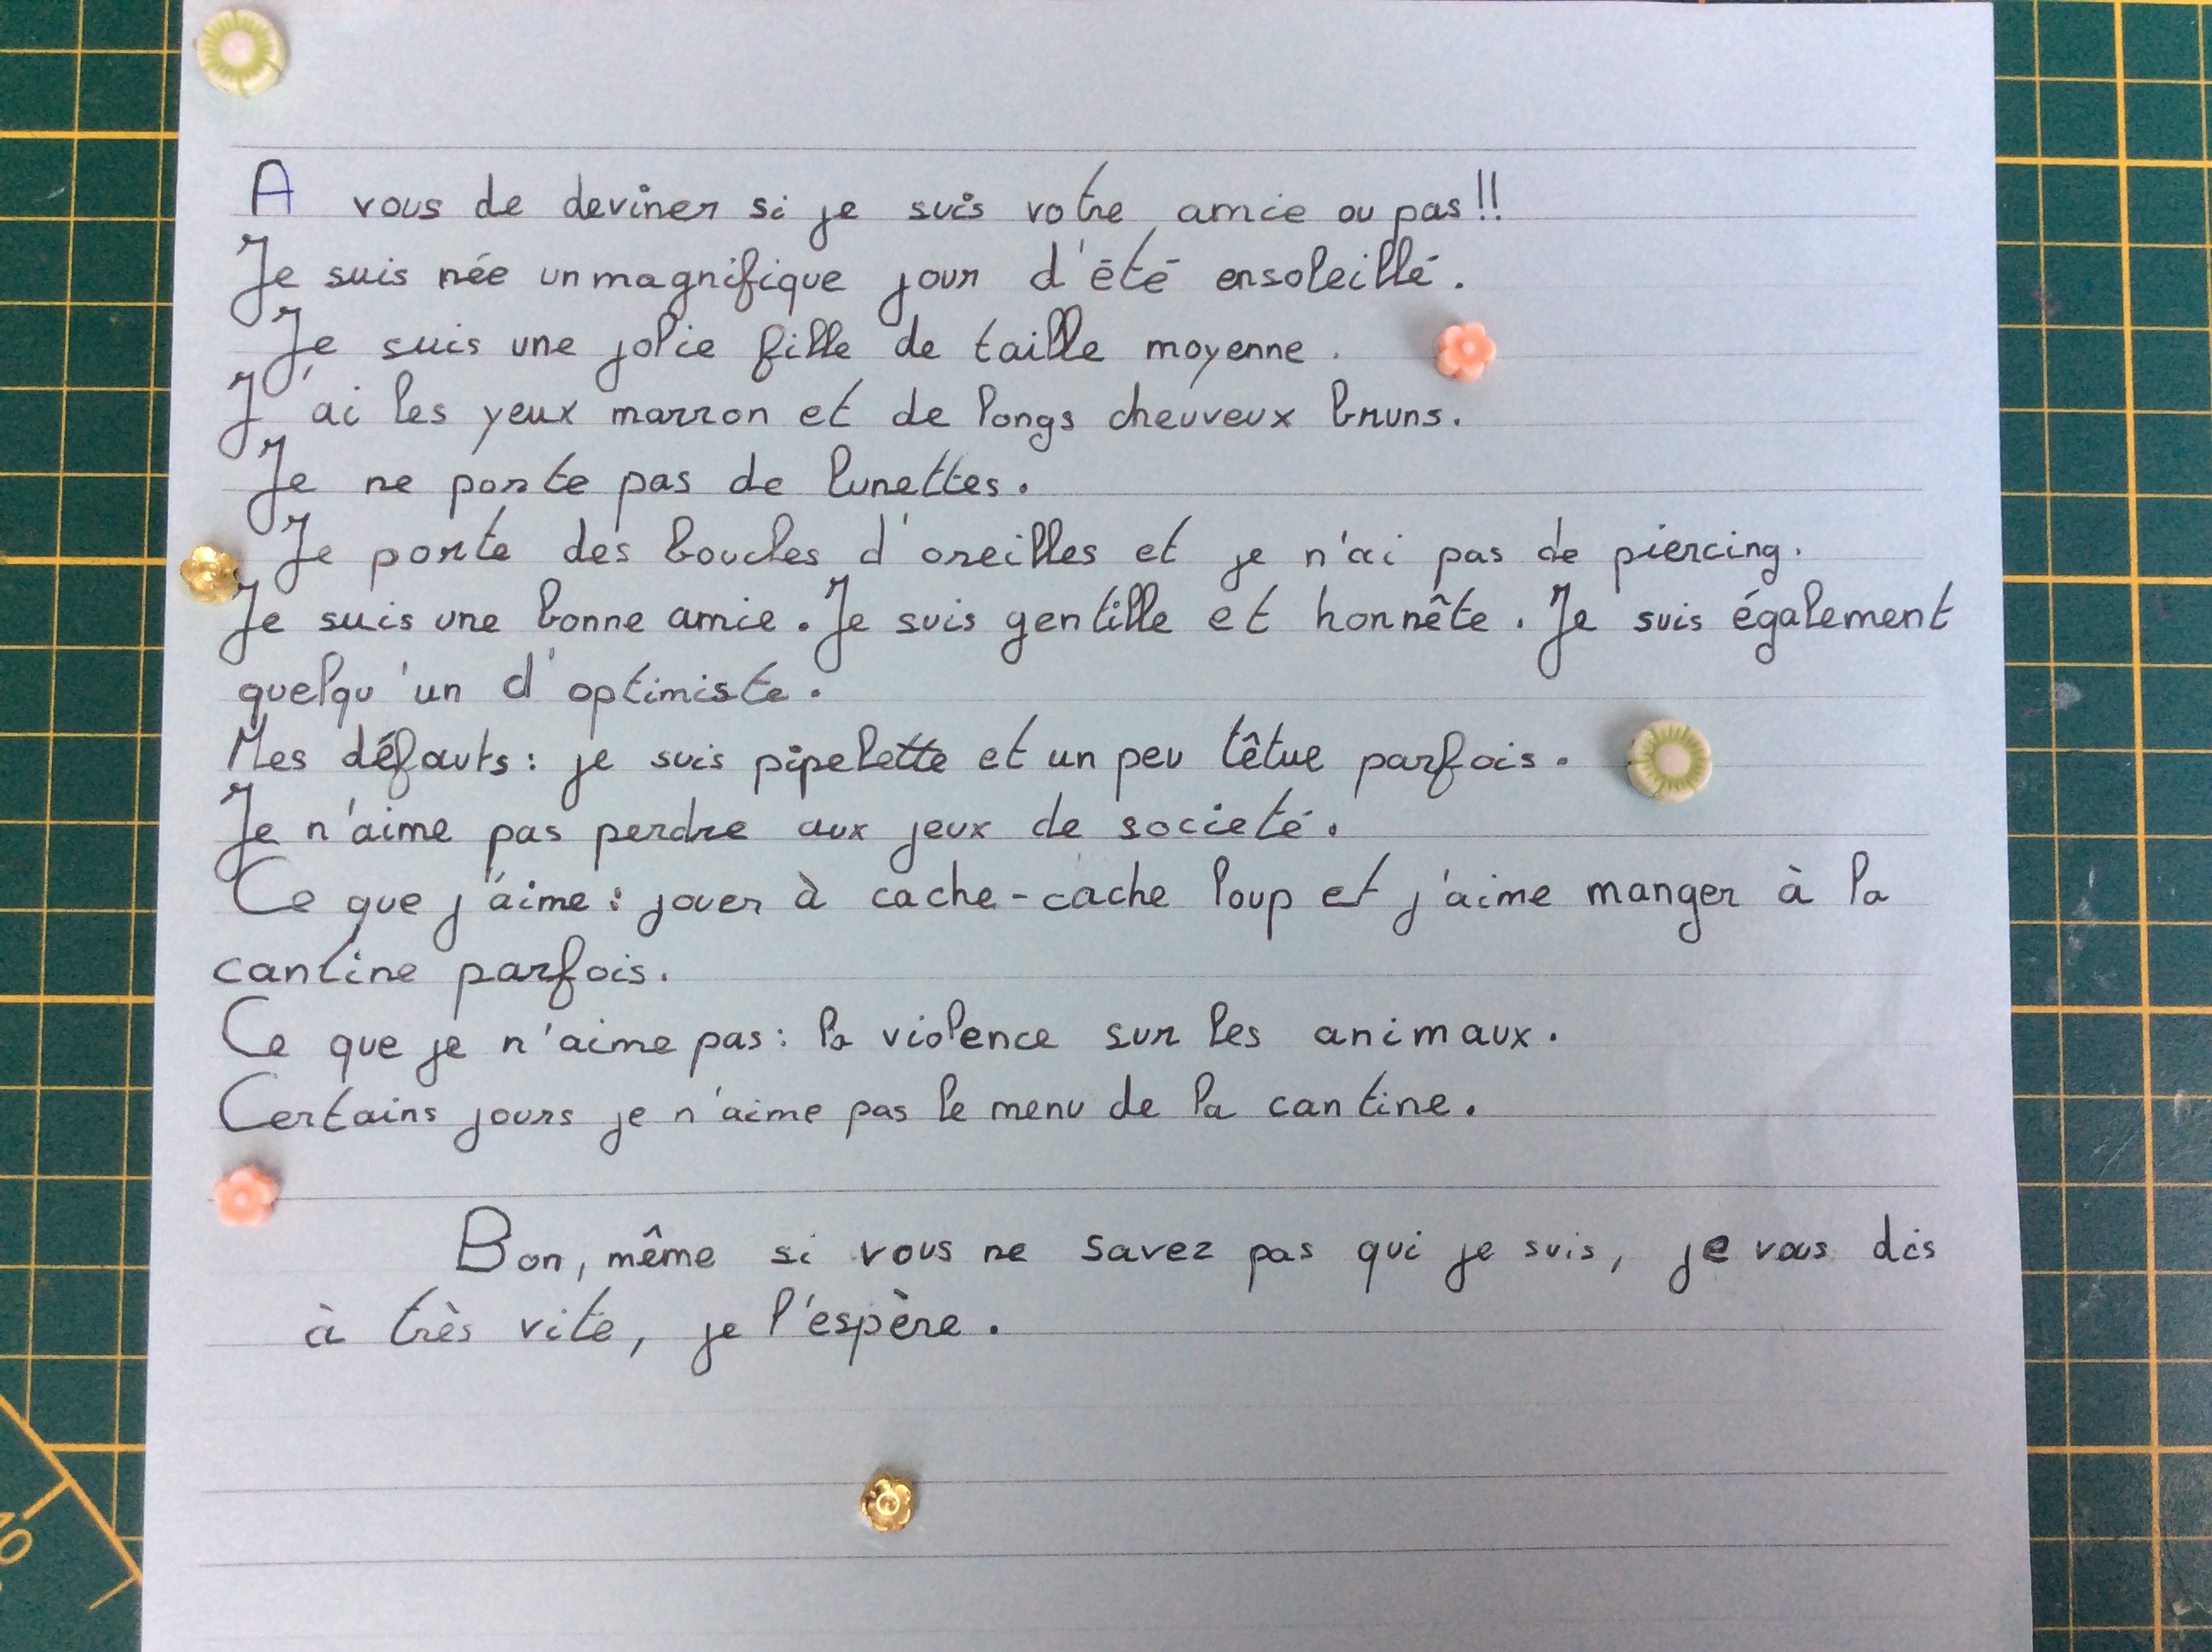 A vous de deviner si je suis votre amie ou pas!!
Je suis née un magnifique jour d'été ensoleillé.
Je suis une jolie fille de taille moyenne.
J'ai les yeux marron et de longs cheuveux bruns.
Je ne porte pas de lunettes.
Je porte des boucles d'oreilles et je n'ai pas de piercing.
Je suis une bonne amie. Je suis gentille et honnête. Je suis également
quelqu'un d'optimiste.
Mes défauts: je suis pipelette et un peu têtue parfois.
Je n'aime pas perdre aux jeux de societé.
Ce que j'aime: jouer à cache-cache loup et j'aime manger à la
cantine parfois.
Ce que je n'aime pas: la violence sur les animaux.
Certains jours je n'aime pas le menu de la cantine.
Bon, même si vous ne savez pas qui je suis, je vous dis
à très vite, je l'espère.